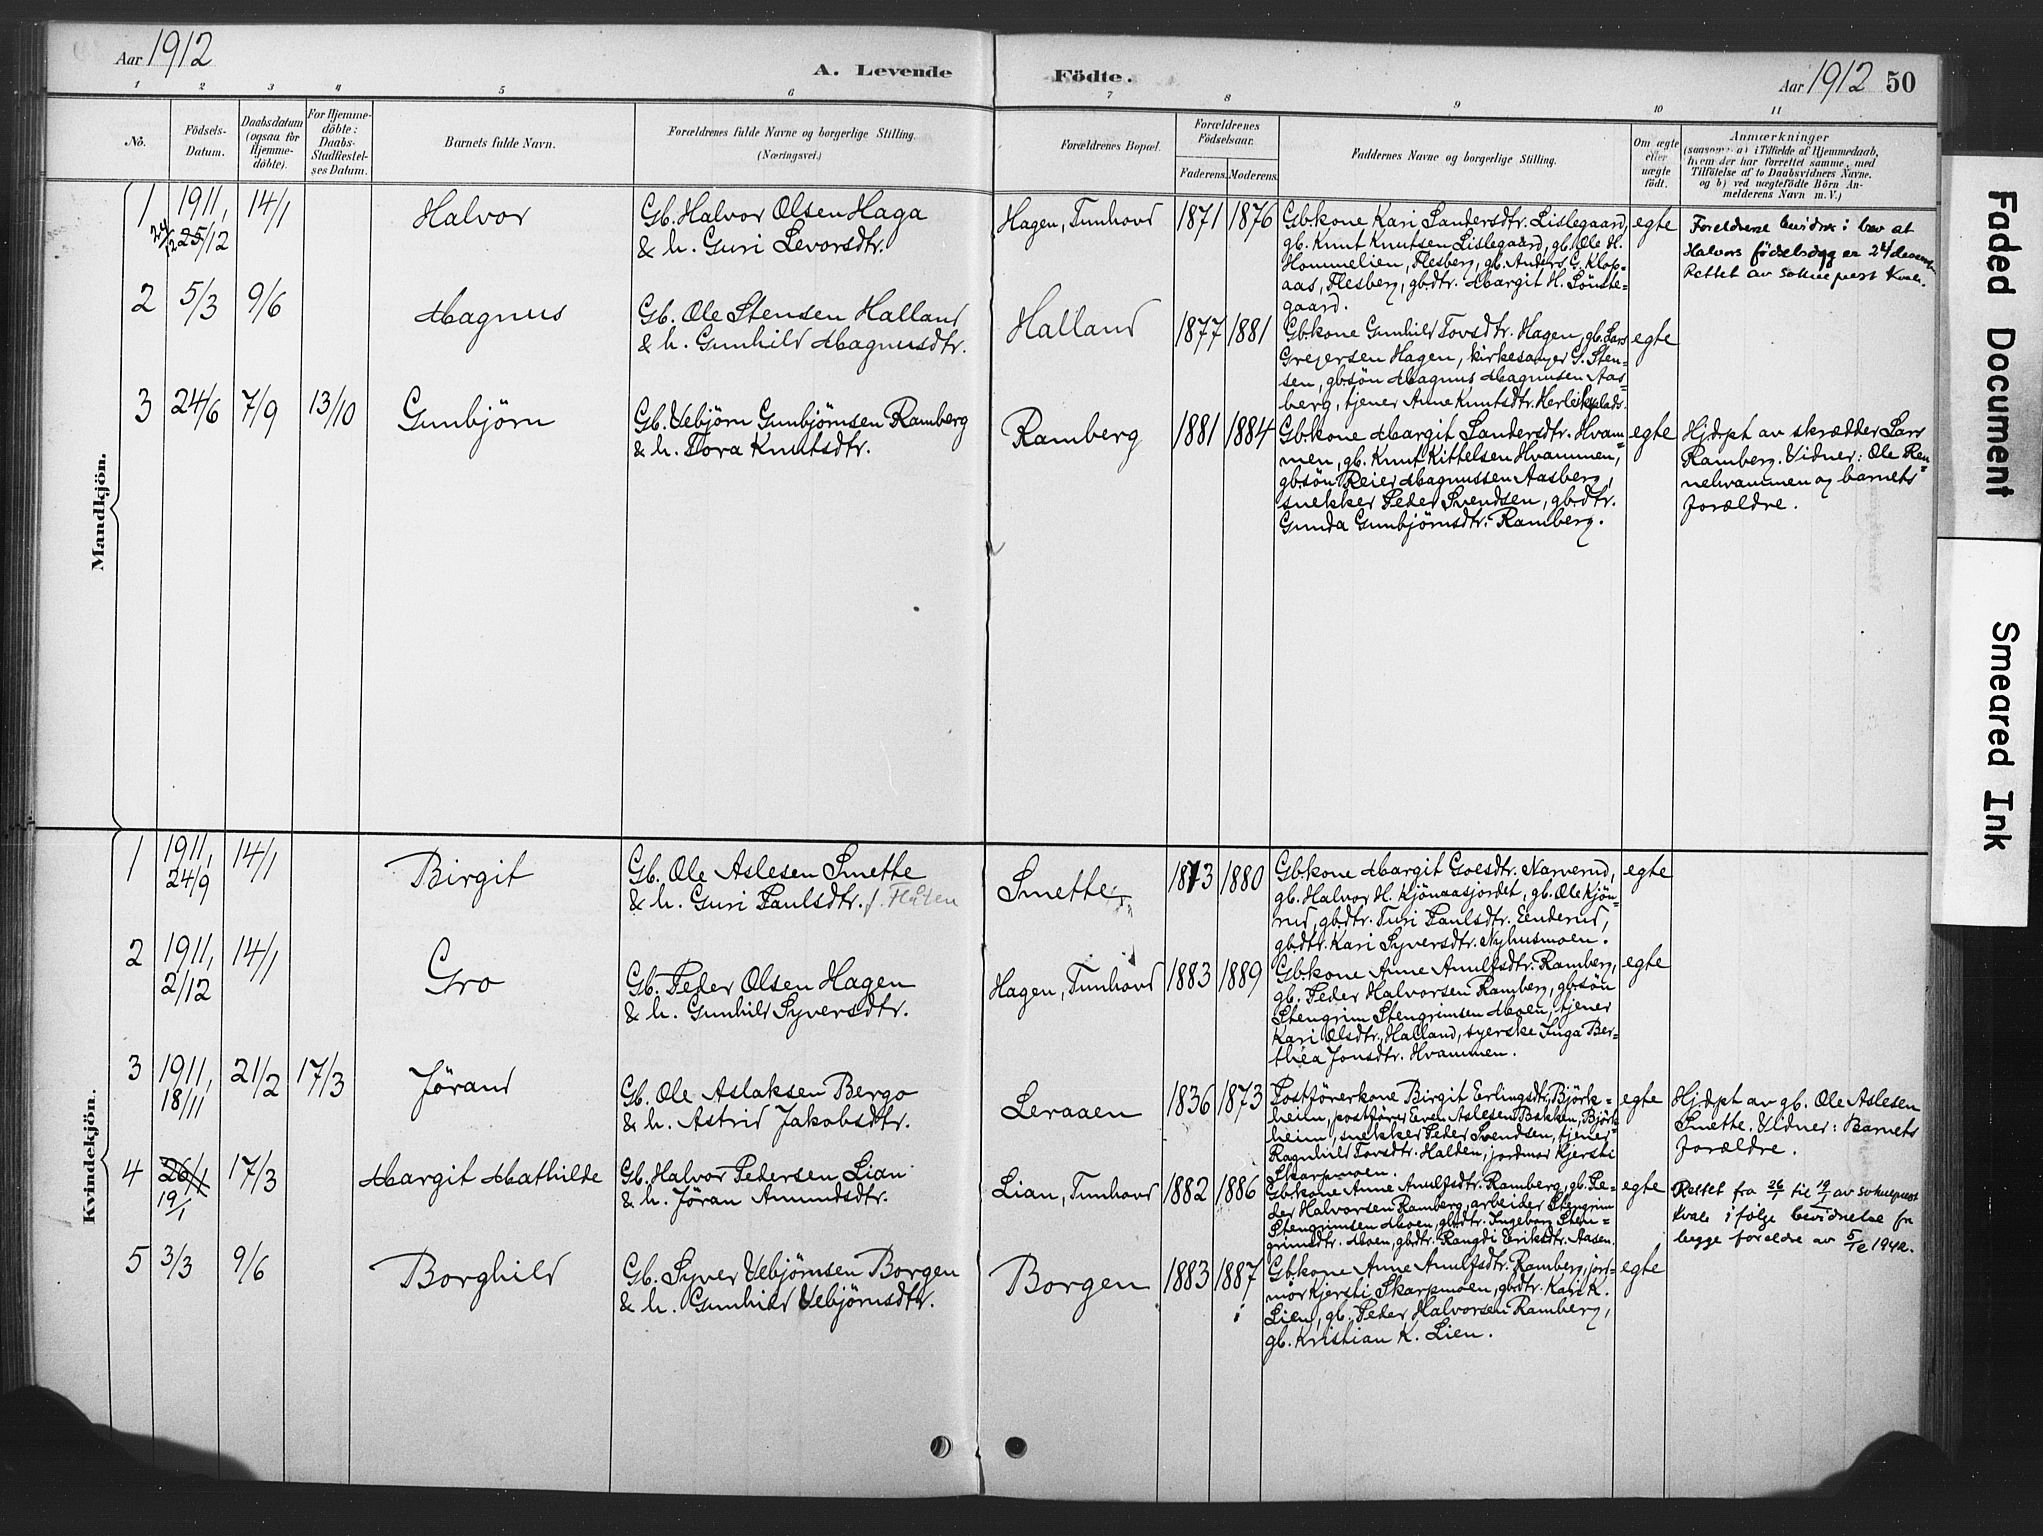 Aar 1912
A. Levende Födte.
Aar 1912 50
1 2 3 4 5 6 7 8 9 10 11
No.
Födsels-
Datum.
Daabsdatum
(ogsaa for
Hjemme-
döbte).
For Hjemme-
döbte:
Daabs-
Stadfæstel-
ses Datum.
Barnets fulde Navn.
Forældrenes fulde Navne og borgerlige Stilling.
(Næringsvei.)
Forældrenes Bopæl.
Forældrenes
Födselsaar.
Faderens. Moderens.
Faddernes Navne og borgerlige Stilling.
Om ægte
eller
uægte
födt.
Anmærkninger
(saasom: a) i Tilfælde af Hjemmedaab,
hvem der har forrettet samme, med
Tilföielse af to Daabsvidners Navne.
og b) ved uægtefödte Börn An-
melderens Navn m. V.)
Mandkjön.
1 1911, 14/1
24/12 25/12
Halvor
Gb. Halvor Olsen Haga
& h. Guri Levorsdtr.
Hagen, Tunhovd
1871 1876
Gbkone Kari Sandersdtr. Lislegaard,
gb. Knut Knutsen Lislegaard, gb. Ole H.
Hommelien, Flesberg, gb. Anders G. Klop-
aas, Flesberg, gbdtr. Margit H. Sönste-
gaard.
egte
Foreldrene bevidner i brev at
Halvors födselsdag er 24 december
Rettet av sokneprest Kvale.
2 5/3 9/6
Magnus
Gb. Ole Stensen Halland
& h. Gunhild Magnusdtr.
Halland
1877 1881
Gbkone Gunhild Tovsdtr. Hagen, gb. Lars
Grejersen Hagen, kirkesanger G. Sten-
sen, gbsön Magnus Magnussen Aas-
berg, tjener Anne Knutsdtr. Herleiksplads.
egte
3 24/6 7/9 13/10
Gunbjörn
Gb. Vebjörn Gunbjörnsen Ramberg
& h. Tora Knutsdtr.
Ramberg
1881 1884
Gbkone Margit Sandersdtr. Hvam-
men, gb. Knut Kittelsen Hvammen,
gbsön Reier Magnussen Aasberg,
snekker Peder Svendsen, gbdtr.
Gunda Gunbjörnsdtr. Ramberg.
egte
Hjdöpt av skrædder Lars
Ramberg. Vidner: Ole Ren-
nehvammen og barnets
forældre.
Kvindekjön.
1 1911, 14/1
24/9
Birgit
Gb. Ole Aslesen Smette
& h. Guri Paulsdtr. f. Flåten
Smette
1873 1880
Gbkone Margit Goesdtr. Narverud,
gb. Halvor H. Kjönaasjordet, gb. Ole Kjön-
rud, gbdtr. Turi Paulsdtr. Enderud,
gbdtr. Kari Syversdtr. Nyhusmoen.
egte
2 1911, 14/1
2/12
Gro
Gb. Peder Olsen Hagen
& h. Gunhild Syversdtr.
Hagen, Tunhovd
1883 1889
Gbkone Anne Arnulfsdtr. Ramberg,
gb. Peder Halvorsen Ramberg, gbsön
Stengrim Stengrimsen Moen, tjener
Kari Olsdtr. Halland, syerske Inga Ber-
thea Jonsdtr. Hvammen.
egte
3 1911, 21/2 17/3
18/11
Jörand
Gb. Ole Aslaksen Bergo
& h. Astrid Jakobsdtr.
Leraaen
1836 1873
Postförerkone Birgit Erlingsdtr. Björk-
heim, postförer Even Aslesen Bakken, Björk-
heim, snekker Peder Svendsen, tjener
Ragnhild Tovsdtr. Halden, jordmor Kjersti
Skarpmoen.
egte
Hjdöpt av gb. Ole Aslesen
Smette. Vidner: Barnets
forældre.
4 26/1 17/3
19/1
Margit Mathilde
Gb. Halvor Pedersen Lian
& h. Jöran Amundsdtr.
Lian, Tunhovd
1882 1886
Gbkone Anne Arnulfsdtr. Ramberg, gb. Pe-
der Halvorsen Ramberg, arbeider Stengrim
Stengrimsen Moen, gbdtr. Ingeborg Sten-
grimsdtr. Moen, gbdtr. Rangdi Eriksdtr. Aasen.
egte
Rettet fra 26/1 til 19/1 av sokneprest
Kvale ifölge bevidnelse fra
begge foreldre av 5/12 1942.
5 3/3 9/6
Borghild
Gb. Syver Vebjörnsen Borgen
& h. Gunhild Vebjörnsdtr.
Borgen
1883 1887
Gbkone Anne Arnulfsdtr. Ramberg, jord-
mor Kjersti Skarpmoen, gbdtr. Kari K.
Lien, gb. Peder Halvorsen Ramberg,
gb. Kristian K. Lien.
egte
Faded Document
Smeared Ink